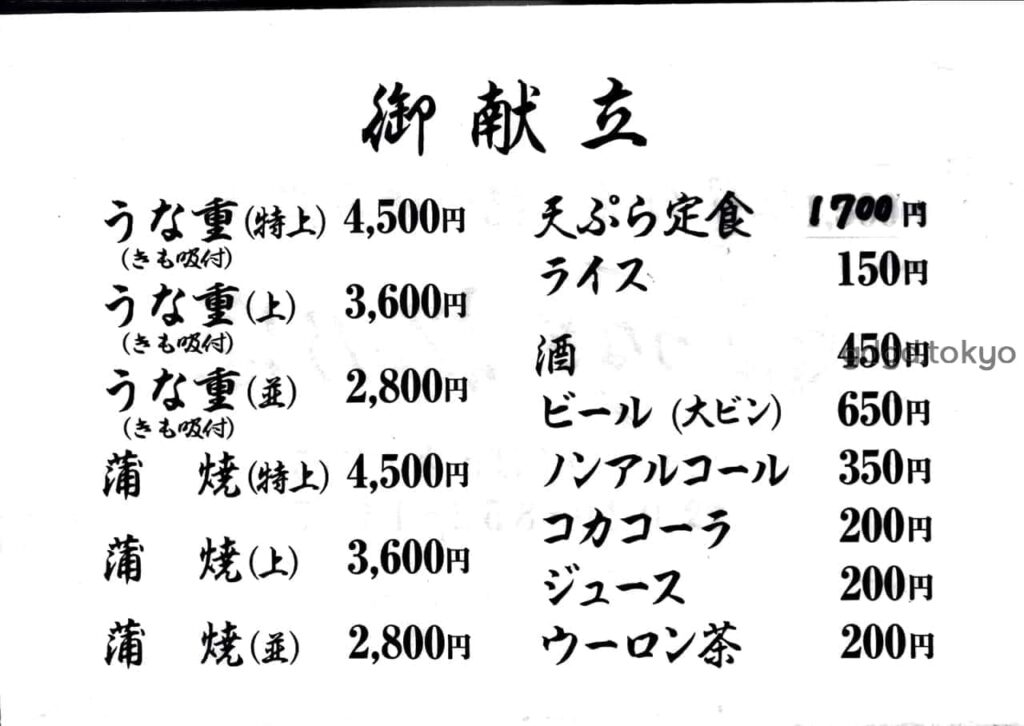 御献立
うな重(特上) 4,500円
(きも吸付)
うな重(上) 3,600円
(きも吸付)
うな重(並) 2,800円
(きも吸付)
蒲 焼(特上) 4,500円
蒲 焼(上) 3,600円
蒲 焼(並) 2,800円
天ぷら定食 1700円
ライス 150円
酒 450円
ビール (大ビン) 650円
ノンアルコール 350円
コカコーラ 200円
ジュース 200円
ウーロン茶 200円